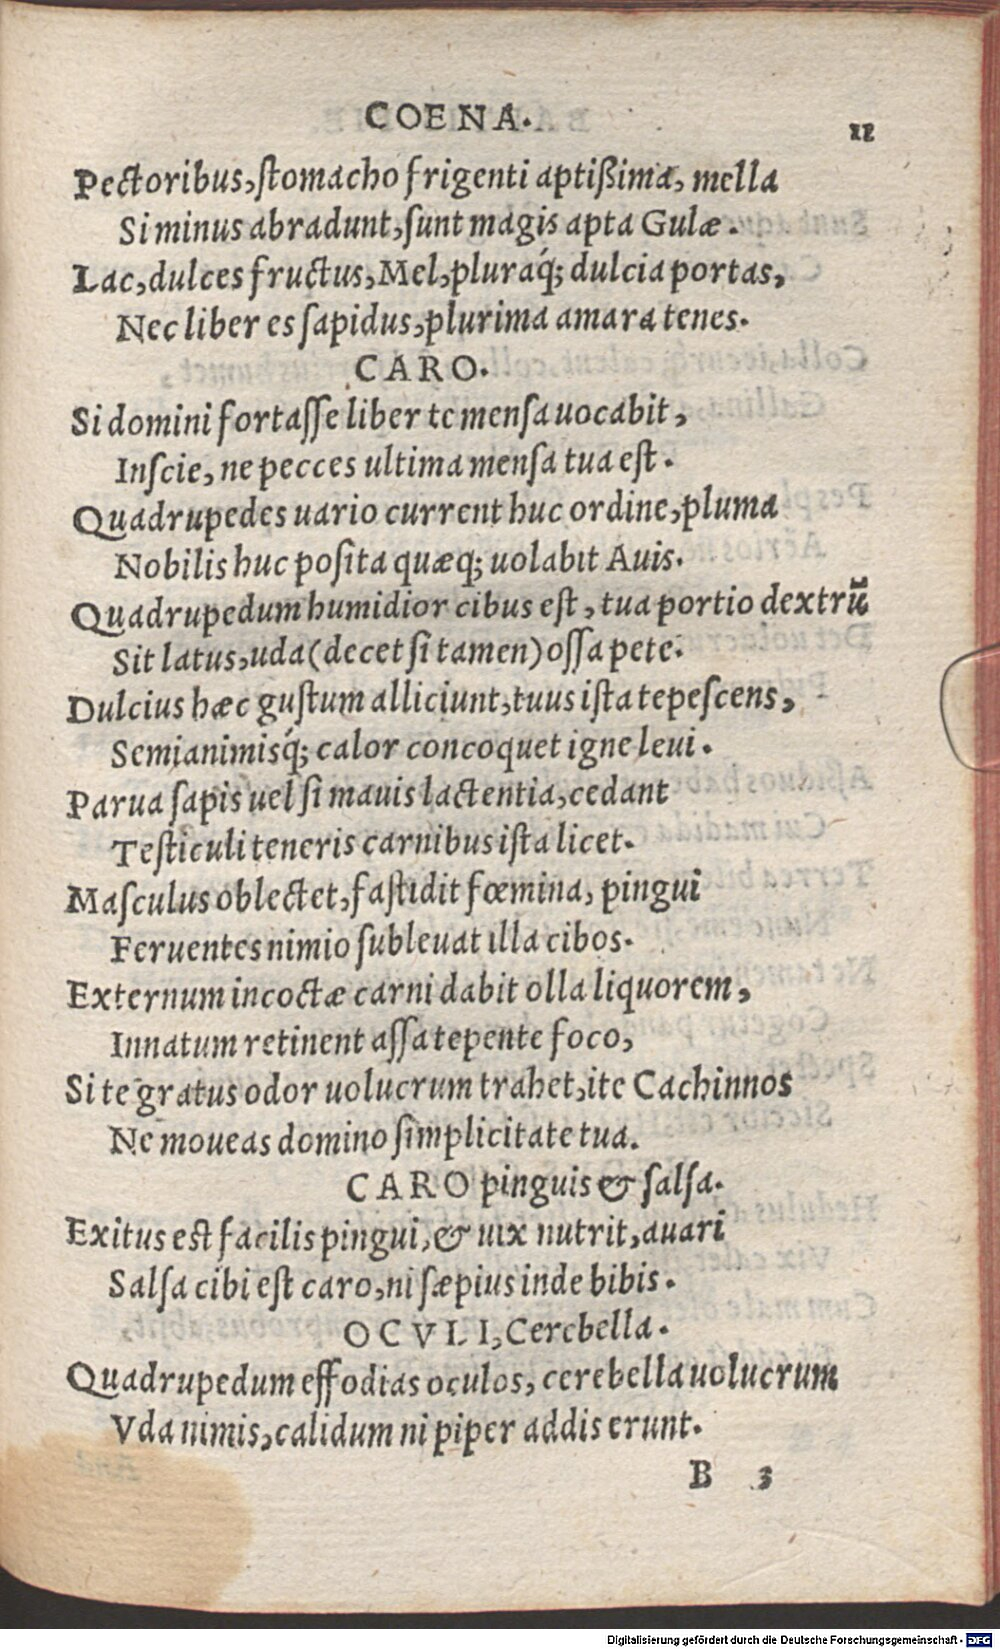 COENA.
11
Pectoribus, ſtomacho frigenti aptißima, mella
Si minus abradunt, ſunt magis apta Gulæ.
Lac, dulces fructus, Mel, pluraq́; dulcia portas,
Nec liber es ſapidus, plurima amara tenes.
CARO.
Si domini fortaſſe liber te menſa uocabit,
Inſcie, ne pecces ultima menſa tua eſt.
Quadrupedes uario current huc ordine, pluma
Nobilis huc poſita quæq; uolabit Auis.
Quadrupedum humidior cibus eſt, tua portio dextrũ
Sit latus, uda (decet ſi tamen) oſſa pete.
Dulcius hæc guſtum alliciunt, tuus iſta tepeſcens,
Semianimisq́; calor concoquet igne leui.
Parua ſapis uel ſi mauis lactentia, cedant
Teſticuli teneris carnibus iſta licet.
Maſculus oblectet, faſtidit fœmina, pingui
Feruentes nimio ſubleuat illa cibos.
Externum incoctæ carni dabit olla liquorem,
Innatum retinent aſſa tepente foco,
Si te gratus odor uolucrum trahet, ite Cachinnos
Ne moueas domino ſimplicitate tua.
CARO pinguis & ſalſa.
Exitus eſt facilis pingui, & uix nutrit, auari
Salſa cibi eſt caro, ni ſæpius inde bibis.
OCVLI, Cerebella.
Quadrupedum effodias oculos, cerebella uolucrum
Vda nimis, calidum ni piper addis erunt.
B 3
Digitalisierung gefördert durch die Deutsche Forschungsgemeinschaft - DFG